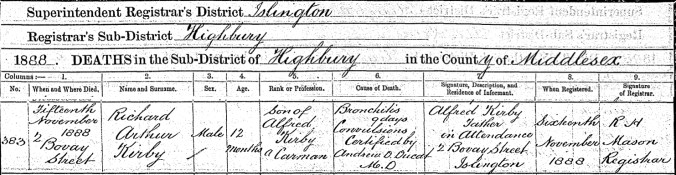 Superintendent Registrar's District Islington
Registrar's Sub-District Highbury
1888. DEATHS in the Sub-District of Highbury in the County of Middlesex
Columns:— 1. 2. 3. 4. 5. 6. 7. 8. 9.
No. When and Where Died. Name and Surname. Sex. Age. Rank or Profession. Cause of Death. Signature, Description, and Residence of Informant. When Registered. Signature of Registrar.
383
Fifteenth
November
1888
2
Bovay
Street
Richard
Arthur
Kirby
Male
12
months
Son of
Alfred
Kirby
a Carman
Bronchitis
days
Convulsions
Certified by
Andrew D. Ducat
M.D
Alfred Kirby
Father
in Attendance
2 Bovay Street
Islington
Sixteenth
November
1888
R H
Mason
Registrar